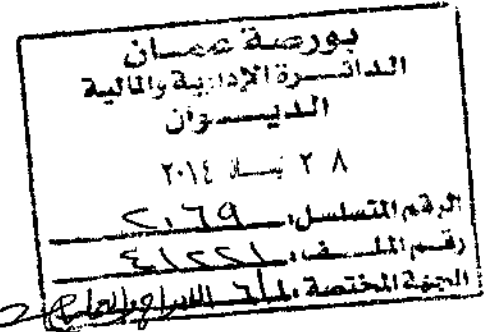 بورصة عمان
الدائرة الإدارية والمالية
الديوان
٢٨ نيسان ٢٠١٤
الرقم المتسلسل: ٢٠٦٩
رقم الملف: ٤١٢٢١
الجهة المختصة: